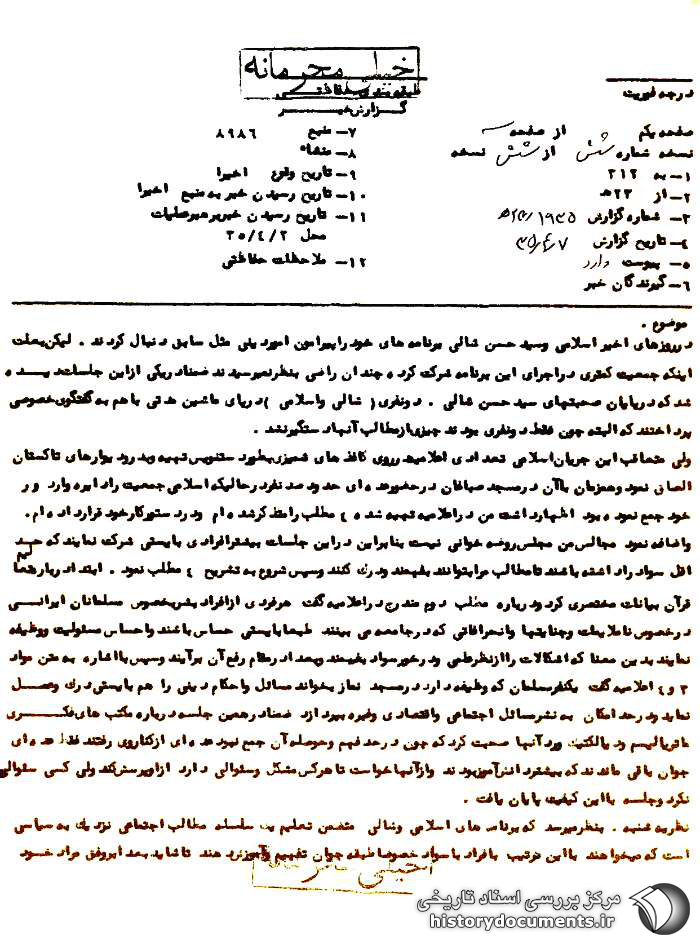 خیلی محرمانه
طبقه بندی حفاظتی
گزارش خبر
درجه فوریت
صفحه یکم از صفحه
نسخه شماره شش از شش نسخه
۱- به ۳۱۲
۲- از ۲۳ ه
۳- شماره گزارش
۴- تاریخ گزارش
۵- پیوست دارد
۶- گیرندگان خبر
۷- منبع ۸۹۸۶
۸- منشاء
۹- تاریخ وقوع اخیرا
۱۰- تاریخ رسیدن خبر به منبع اخیرا
۱۱- تاریخ رسیدن خبر برهبر عملیات
محل ۳۵/۴/۲
۱۲- ملاحظات حفاظتی
موضوع .
در روزهای اخیر اسلامی وسید حسن شالی برنامه های خود را پیرامون امور دینی مثل سابق دنبال کردند . لیکن بعلت
اینکه جمعیت کمتری در اجرای این برنامه شرکت کرده چندان راضی بنظر نمیرسیدند ضمنا در یکی از این جلسات دیده
شد که در پایان صحبتهای سید حسن شالی . دونفری ( شالی واسلامی ) در پای ماشین مدتی با هم به گفتگوی خصوصی
پرداختند که البته چون فقط دونفری بودند چیزی از مطالب آنها دستگیر نشد .
ولی متعاقب این جریان اسلامی تعدادی اعلامیه در روی کاغذ های تمیزی بطور دستنویس تهیه وبدرو دیوارهای تاکستان
الصاق نمود وهمزمان با آن در مسجد صباغان در حضور عده ای حدود صد نفر در حالیکه اسلامی جمعیت را دایره وار د و ر
خود جمع نموده بود اظهار داشت من در اعلامیه تهیه شده ۴ مطلب را متذکر شده ام ودر دستور کار خود قرار داده ام .
واضافه نمود مجالس من مجلس روضه خوانی نیست بنابراین در این جلسات بیشتر افرادی بایستی شرکت نمایند که حد
اقل سواد را داشته باشند تا مطالب مرا بتوانند بفهمند ودرک کنند وسپس شروع به تشریح ۴ مطلب نمود . ابتدا درباره
قرآن بیانات مختصری کرد و درباره مطلب دوم مندرج در اعلامیه گفت هر فردی از افراد بشر بخصوص مسلمانان ایرانی
در خصوص ناملایمات وجنایتها وانحرافاتی که در جامعه می بینند طبعا بایستی حساس باشند واحساس مسئولیت ووظیفه
نمایند بدین معنا که اشکالات را از نظر علمی ودر خور سواد بفهمند وبعد در مقام رفع آن برآیند وسپس با اشاره به متن مواد
۳ و ۴ اعلامیه گفت یکنفر مسلمان که وظیفه دارد در مسجد نماز بخواند مسائل واحکام دینی را هم بایستی درک وعمل
نماید ودر حد امکان به نشر مسائل اجتماعی واقتصادی وغیره بپردازد ضمنا در همین جلسه درباره مکتب های فکری
ماتریالیسم ودیالکتیک ورد آنها صحبت کرد که چون در حد فهم وحوصله آن جمع نبود عده ای از کناروی رفتند فقط عده ای
جوان باقی ماندند که بیشتر دانش آموز بودند واز آنها خواست تا هر کس مشکل وسئوالی دارد از او پرسش کند ولی کسی سئوالی
نکرد وجلسه با این کیفیت پایان یافت .
نظریه شنبه . بنظر میرسد که برنامه های اسلامی وشالی متضمن تعلیم یک سلسله مطالب اجتماعی نزدیک به سیاسی
است که میخواهند با این ترتیب به افراد با سواد خصوصا طبقه جوان تفهیم وآموزش دهند تا شاید بعدا بر وفق مراد خود
خیلی محرمانه
مرکز بررسی اسناد تاریخی
historydocuments.ir